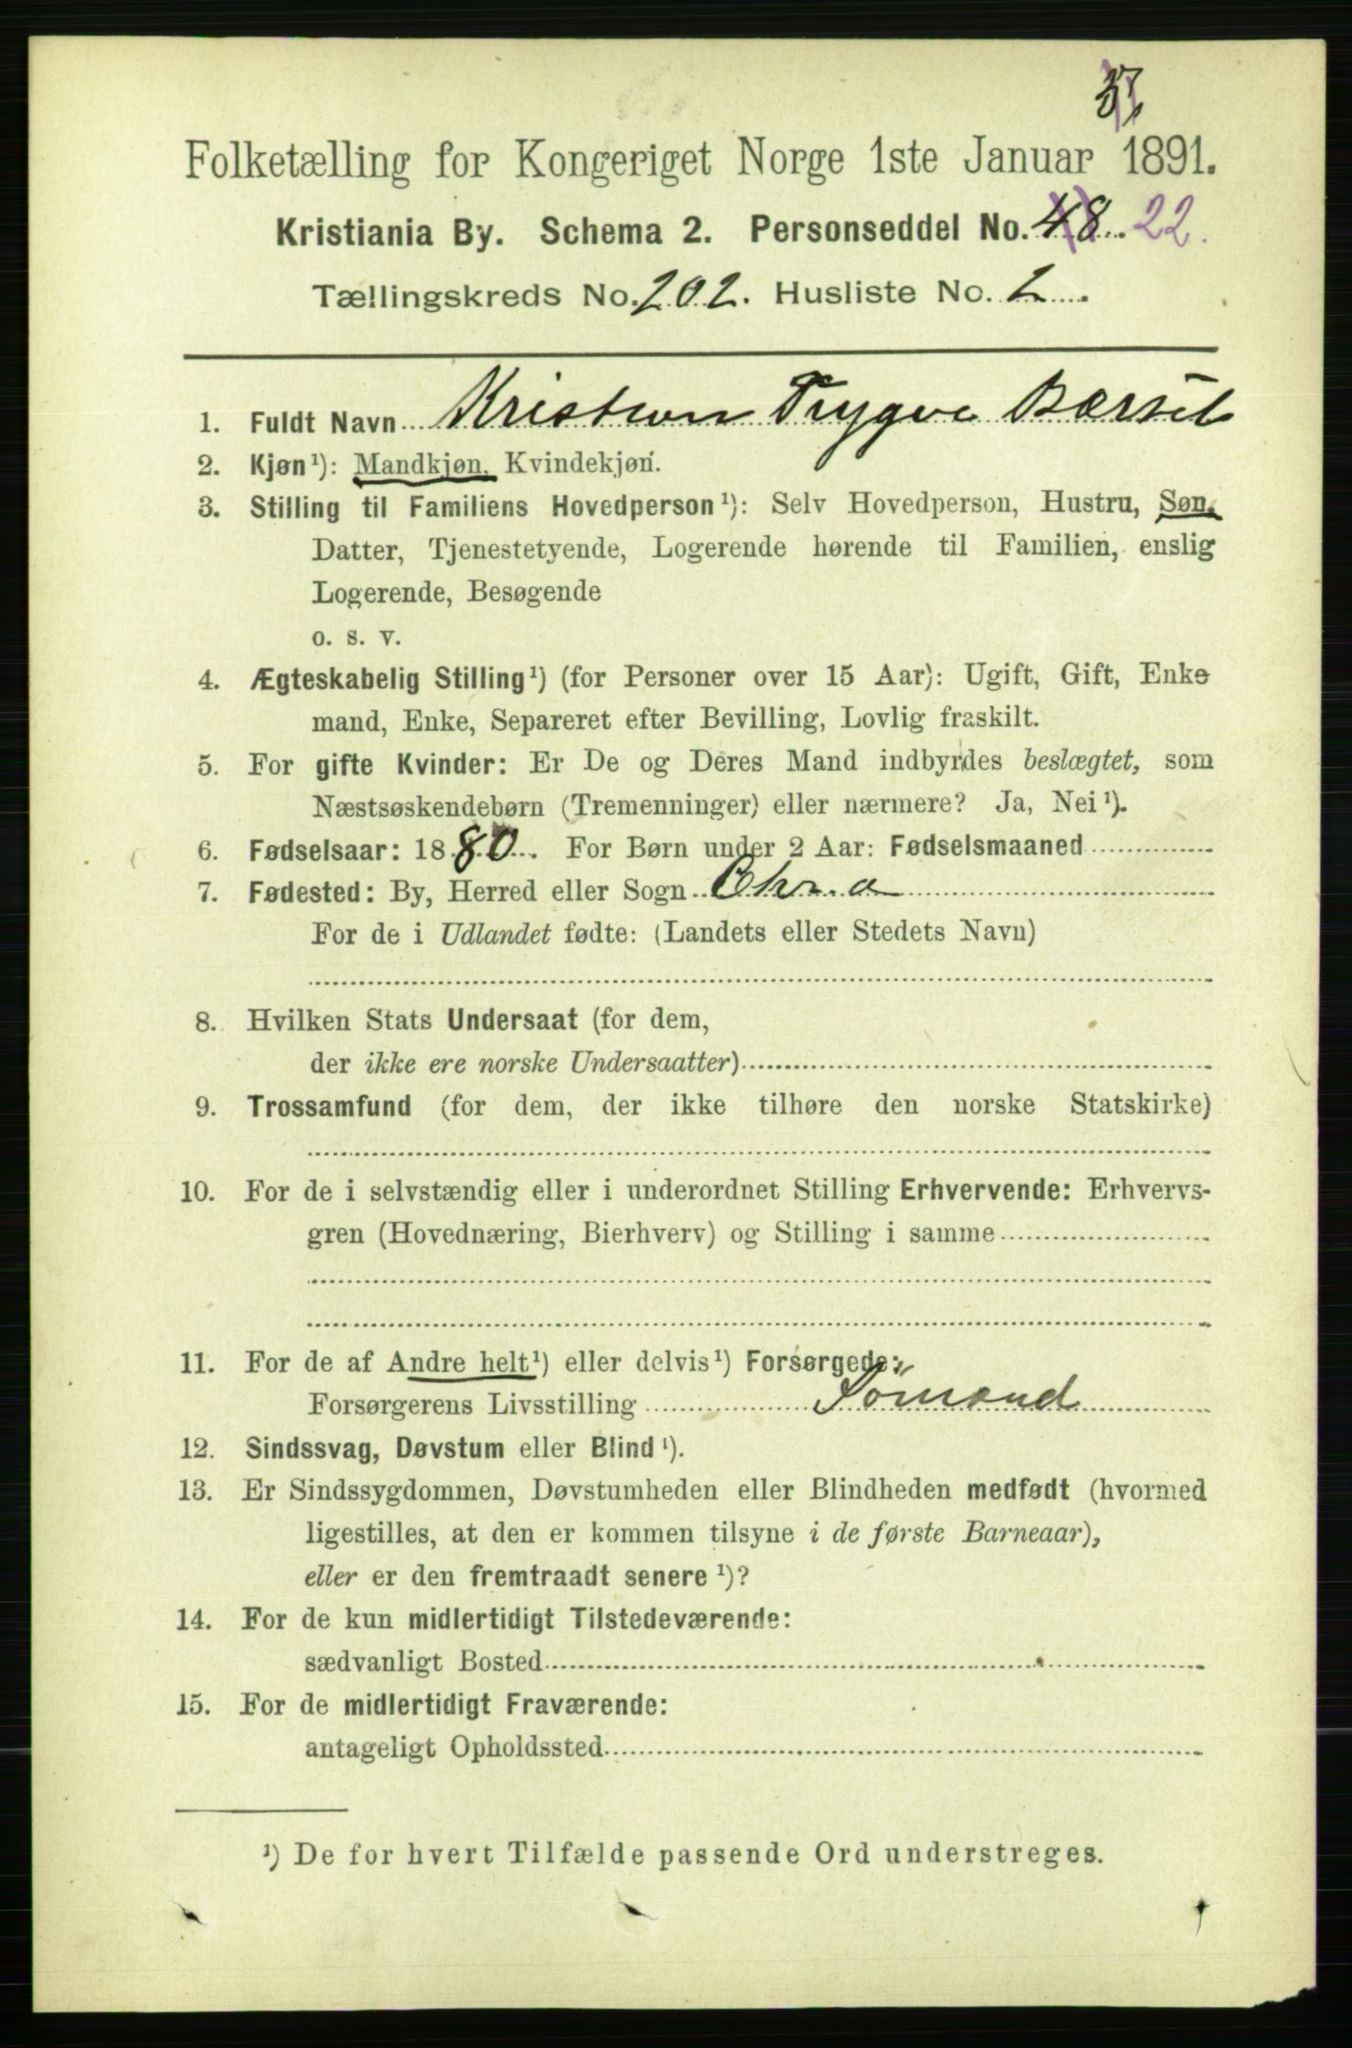 Folketælling for Kongeriget Norge 1ste Januar 1891.
Kristiania By. Schema 2. Personseddel No. 48. 22.
Tællingskreds No. 202. Husliste No. 2.
1. Fuldt Navn Kristian Trygve Børsek
2. Kjøn¹): Mandkjøn, Kvindekjøn.
3. Stilling til Familiens Hovedperson¹): Selv Hovedperson, Hustru, Søn,
Datter, Tjenestetyende, Logerende hørende til Familien, enslig
Logerende, Besøgende
o. s. v.
4. Ægteskabelig Stilling¹) (for Personer over 15 Aar): Ugift, Gift, Enke
mand, Enke, Separeret efter Bevilling, Lovlig fraskilt.
5. For gifte Kvinder: Er De og Deres Mand indbyrdes beslægtet, som
Næstsøskendebørn (Tremenninger) eller nærmere? Ja, Nei¹).
6. Fødselsaar: 1880. For Børn under 2 Aar: Fødselsmaaned
7. Fødested: By, Herred eller Sogn Chr.a
For de i Udlandet fødte: (Landets eller Stedets Navn)
8. Hvilken Stats Undersaat (for dem,
der ikke ere norske Undersaatter)
9. Trossamfund (for dem, der ikke tilhøre den norske Statskirke)
10. For de i selvstændig eller i underordnet Stilling Erhvervende: Erhvervs-
gren (Hovednæring, Bierhverv) og Stilling i samme
11. For de af Andre helt¹) eller delvis¹) Forsørgede:
Forsørgerens Livsstilling Sömand
12. Sindssvag, Døvstum eller Blind¹).
13. Er Sindssygdommen, Døvstumheden eller Blindheden medfødt (hvormed
ligestilles, at den er kommen tilsyne i de første Barneaar),
eller er den fremtraadt senere¹)?
14. For de kun midlertidigt Tilstedeværende:
sædvanligt Bosted
15. For de midlertidigt Fraværende:
antageligt Opholdssted
¹) De for hvert Tilfælde passende Ord understreges.